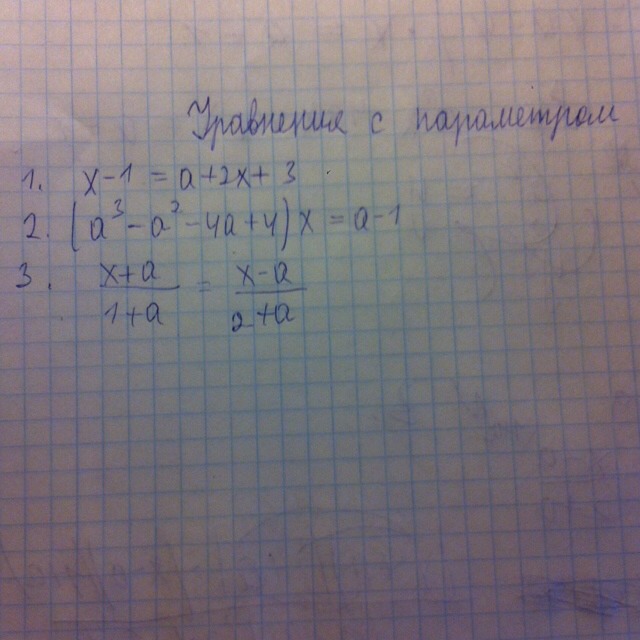 Уравнения с параметром
1. x-1 = a+2x+3
2. (a³-a²-4a+4)x = a-1
3. \frac{x+a}{1+a} = \frac{x-a}{2+a}